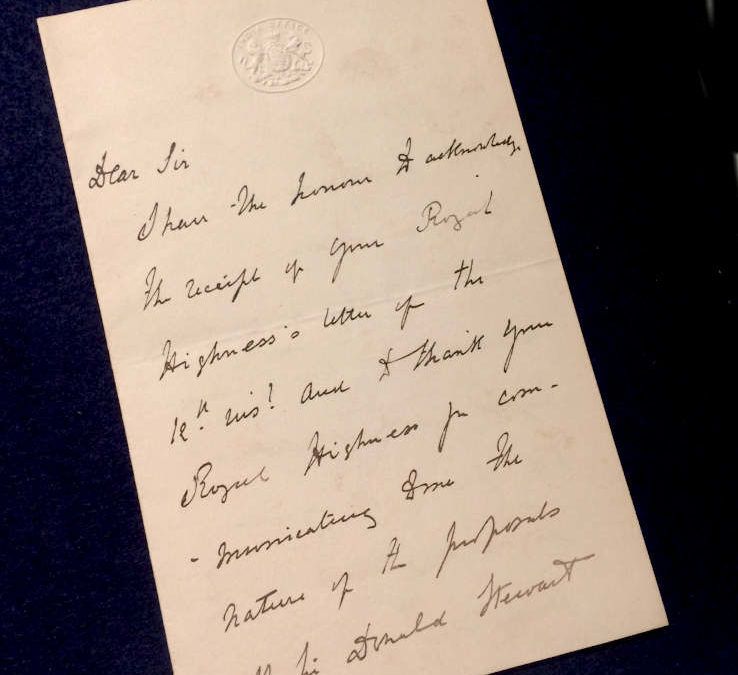 INDIA OFFICE
Dear Sir
I have the honour to acknowledge
the receipt of your Royal
Highness's letter of the
12th inst and to thank your
Royal Highness for com-
-municating to me the
nature of the proposals
Sir Donald Stewart